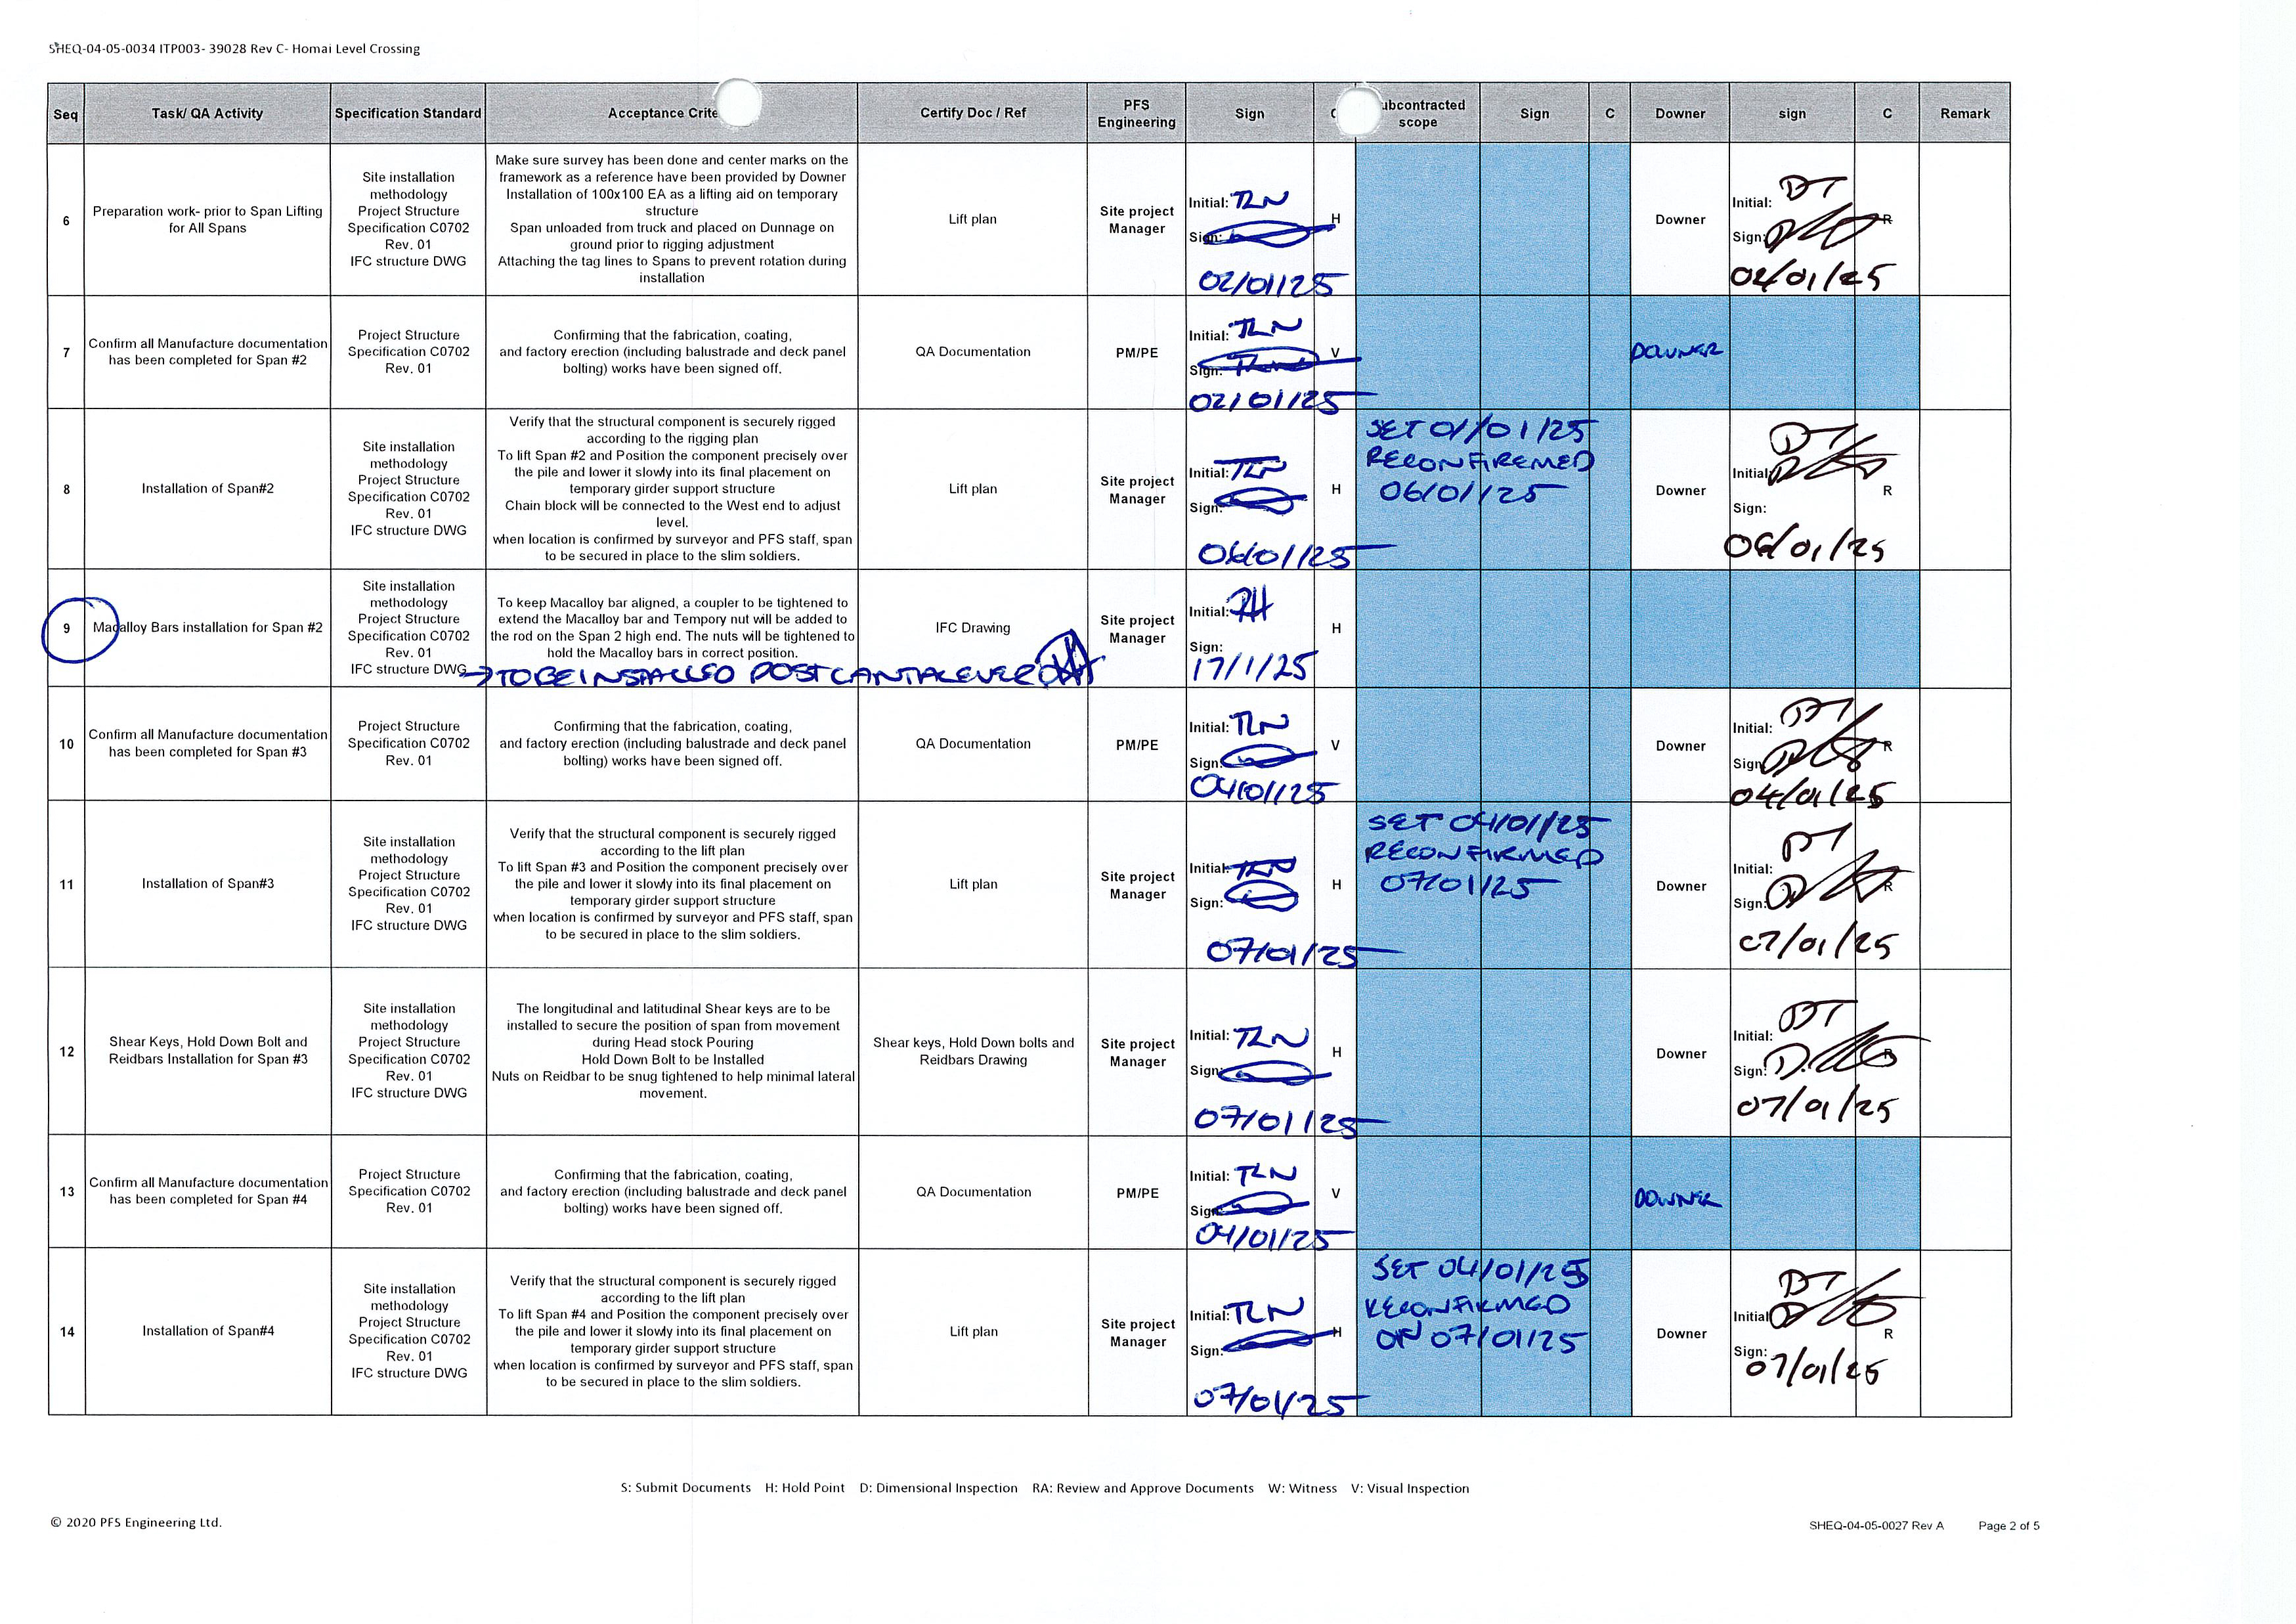 SHEQ-04-05-0034 ITP003- 39028 Rev C- Homai Level Crossing
Seq Task/ QA Activity Specification Standard Acceptance Crite Certify Doc / Ref PFS Engineering Sign C ubcontracted scope Sign C Downer sign C Remark
6
Preparation work- prior to Span Lifting
for All Spans
Site installation
methodology
Project Structure
Specification C0702
Rev. 01
IFC structure DWG
Make sure survey has been done and center marks on the
framework as a reference have been provided by Downer
Installation of 100x100 EA as a lifting aid on temporary
structure
Span unloaded from truck and placed on Dunnage on
ground prior to rigging adjustment
Attaching the tag lines to Spans to prevent rotation during
installation
Lift plan
Site project
Manager
Initial: TLN
Sign:
02/01/25
H
Downer
Initial: DT
Sign:
02/01/25
R
7
Confirm all Manufacture documentation
has been completed for Span #2
Project Structure
Specification C0702
Rev. 01
Confirming that the fabrication, coating,
and factory erection (including balustrade and deck panel
bolting) works have been signed off.
QA Documentation
PM/PE
Initial: TLN
Sign:
02/01/25
V
DOWNER
8
Installation of Span#2
Site installation
methodology
Project Structure
Specification C0702
Rev. 01
IFC structure DWG
Verify that the structural component is securely rigged
according to the rigging plan
To lift Span #2 and Position the component precisely over
the pile and lower it slowly into its final placement on
temporary girder support structure
Chain block will be connected to the West end to adjust
level.
when location is confirmed by surveyor and PFS staff, span
to be secured in place to the slim soldiers.
Lift plan
Site project
Manager
Initial: TLN
Sign:
06/01/25
H
SET 01/01/25
RECONFIREMED
06/01/25
Downer
DT
Initial:
Sign:
06/01/25
R
9
Macalloy Bars installation for Span #2
Site installation
methodology
Project Structure
Specification C0702
Rev. 01
IFC structure DWG
To keep Macalloy bar aligned, a coupler to be tightened to
extend the Macalloy bar and Tempory nut will be added to
the rod on the Span 2 high end. The nuts will be tightened to
hold the Macalloy bars in correct position.
→ TO BE INSTALLED POST CANTALEVER
IFC Drawing
Site project
Manager
Initial:
Sign:
17/1/25
H
10
Confirm all Manufacture documentation
has been completed for Span #3
Project Structure
Specification C0702
Rev. 01
Confirming that the fabrication, coating,
and factory erection (including balustrade and deck panel
bolting) works have been signed off.
QA Documentation
PM/PE
Initial: TLN
Sign:
04/01/25
V
Downer
Initial: DT
Sign:
04/01/25
R
11
Installation of Span#3
Site installation
methodology
Project Structure
Specification C0702
Rev. 01
IFC structure DWG
Verify that the structural component is securely rigged
according to the lift plan
To lift Span #3 and Position the component precisely over
the pile and lower it slowly into its final placement on
temporary girder support structure
when location is confirmed by surveyor and PFS staff, span
to be secured in place to the slim soldiers.
Lift plan
Site project
Manager
Initial: TLN
Sign:
07/01/25
H
SET 04/01/25
RECONFIRMED
07/01/25
Downer
DT
Initial:
Sign:
07/01/25
R
12
Shear Keys, Hold Down Bolt and
Reidbars Installation for Span #3
Site installation
methodology
Project Structure
Specification C0702
Rev. 01
IFC structure DWG
The longitudinal and latitudinal Shear keys are to be
installed to secure the position of span from movement
during Head stock Pouring
Hold Down Bolt to be Installed
Nuts on Reidbar to be snug tightened to help minimal lateral
movement.
Shear keys, Hold Down bolts and
Reidbars Drawing
Site project
Manager
Initial: TLN
Sign:
07/01/25
H
Downer
DT
Initial:
Sign:
07/01/25
R
13
Confirm all Manufacture documentation
has been completed for Span #4
Project Structure
Specification C0702
Rev. 01
Confirming that the fabrication, coating,
and factory erection (including balustrade and deck panel
bolting) works have been signed off.
QA Documentation
PM/PE
Initial: TLN
Sign:
04/01/25
V
DOWNER
14
Installation of Span#4
Site installation
methodology
Project Structure
Specification C0702
Rev. 01
IFC structure DWG
Verify that the structural component is securely rigged
according to the lift plan
To lift Span #4 and Position the component precisely over
the pile and lower it slowly into its final placement on
temporary girder support structure
when location is confirmed by surveyor and PFS staff, span
to be secured in place to the slim soldiers.
Lift plan
Site project
Manager
Initial: TLN
Sign:
07/01/25
H
SET 04/01/25
RECONFIRMED
ON 07/01/25
Downer
DT
Initial:
Sign:
07/01/25
R
S: Submit Documents H: Hold Point D: Dimensional Inspection RA: Review and Approve Documents W: Witness V: Visual Inspection
© 2020 PFS Engineering Ltd.
SHEQ-04-05-0027 Rev A Page 2 of 5